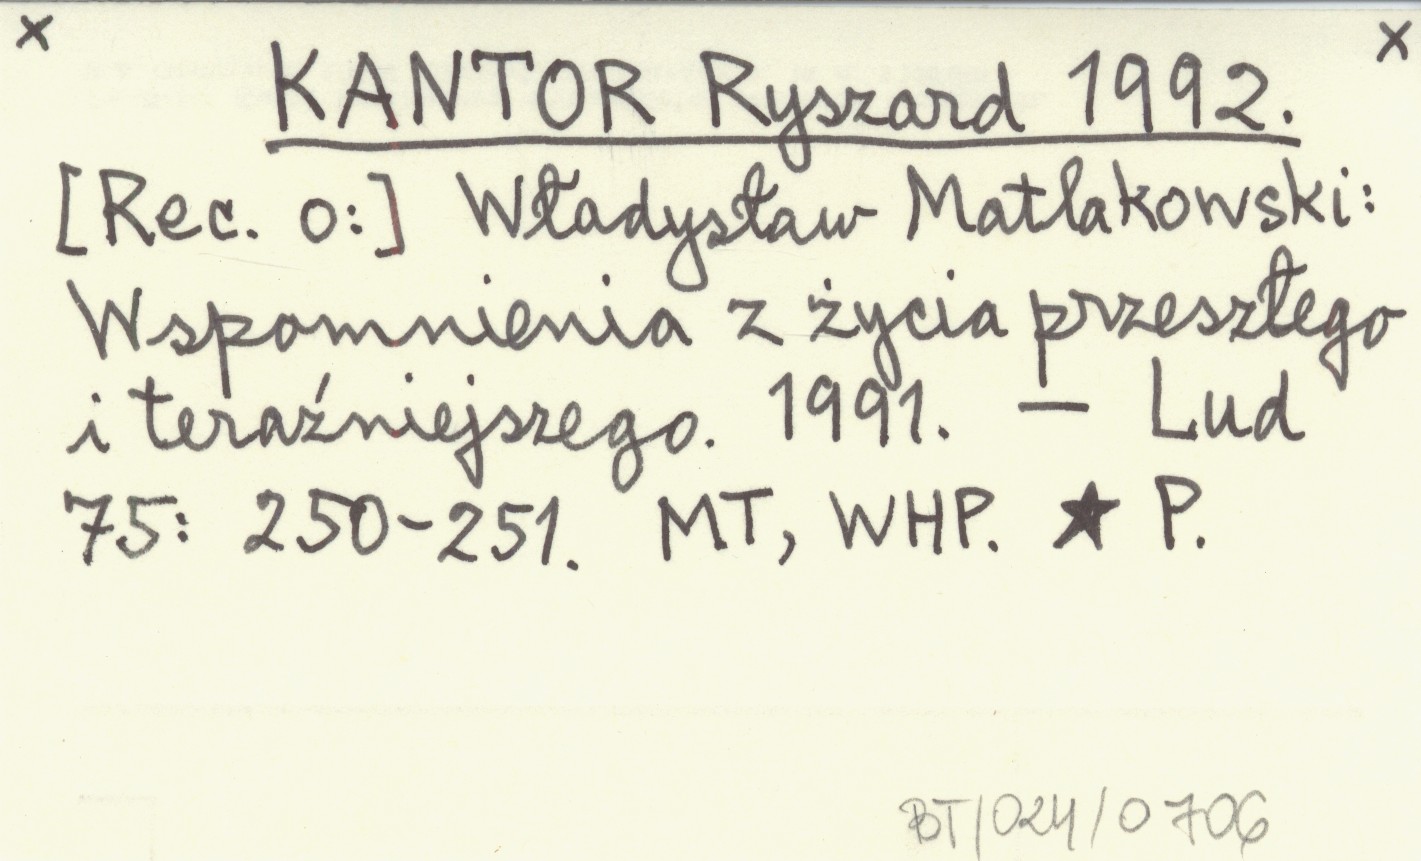 x x
KANTOR Ryszard 1992.
[Rec. o:] Władysław Matlakowski:
Wspomnienia z życia przeszłego
i teraźniejszego. 1991. — Lud
75: 250-251. MT, WHP. ★ P.
BT/024/0706